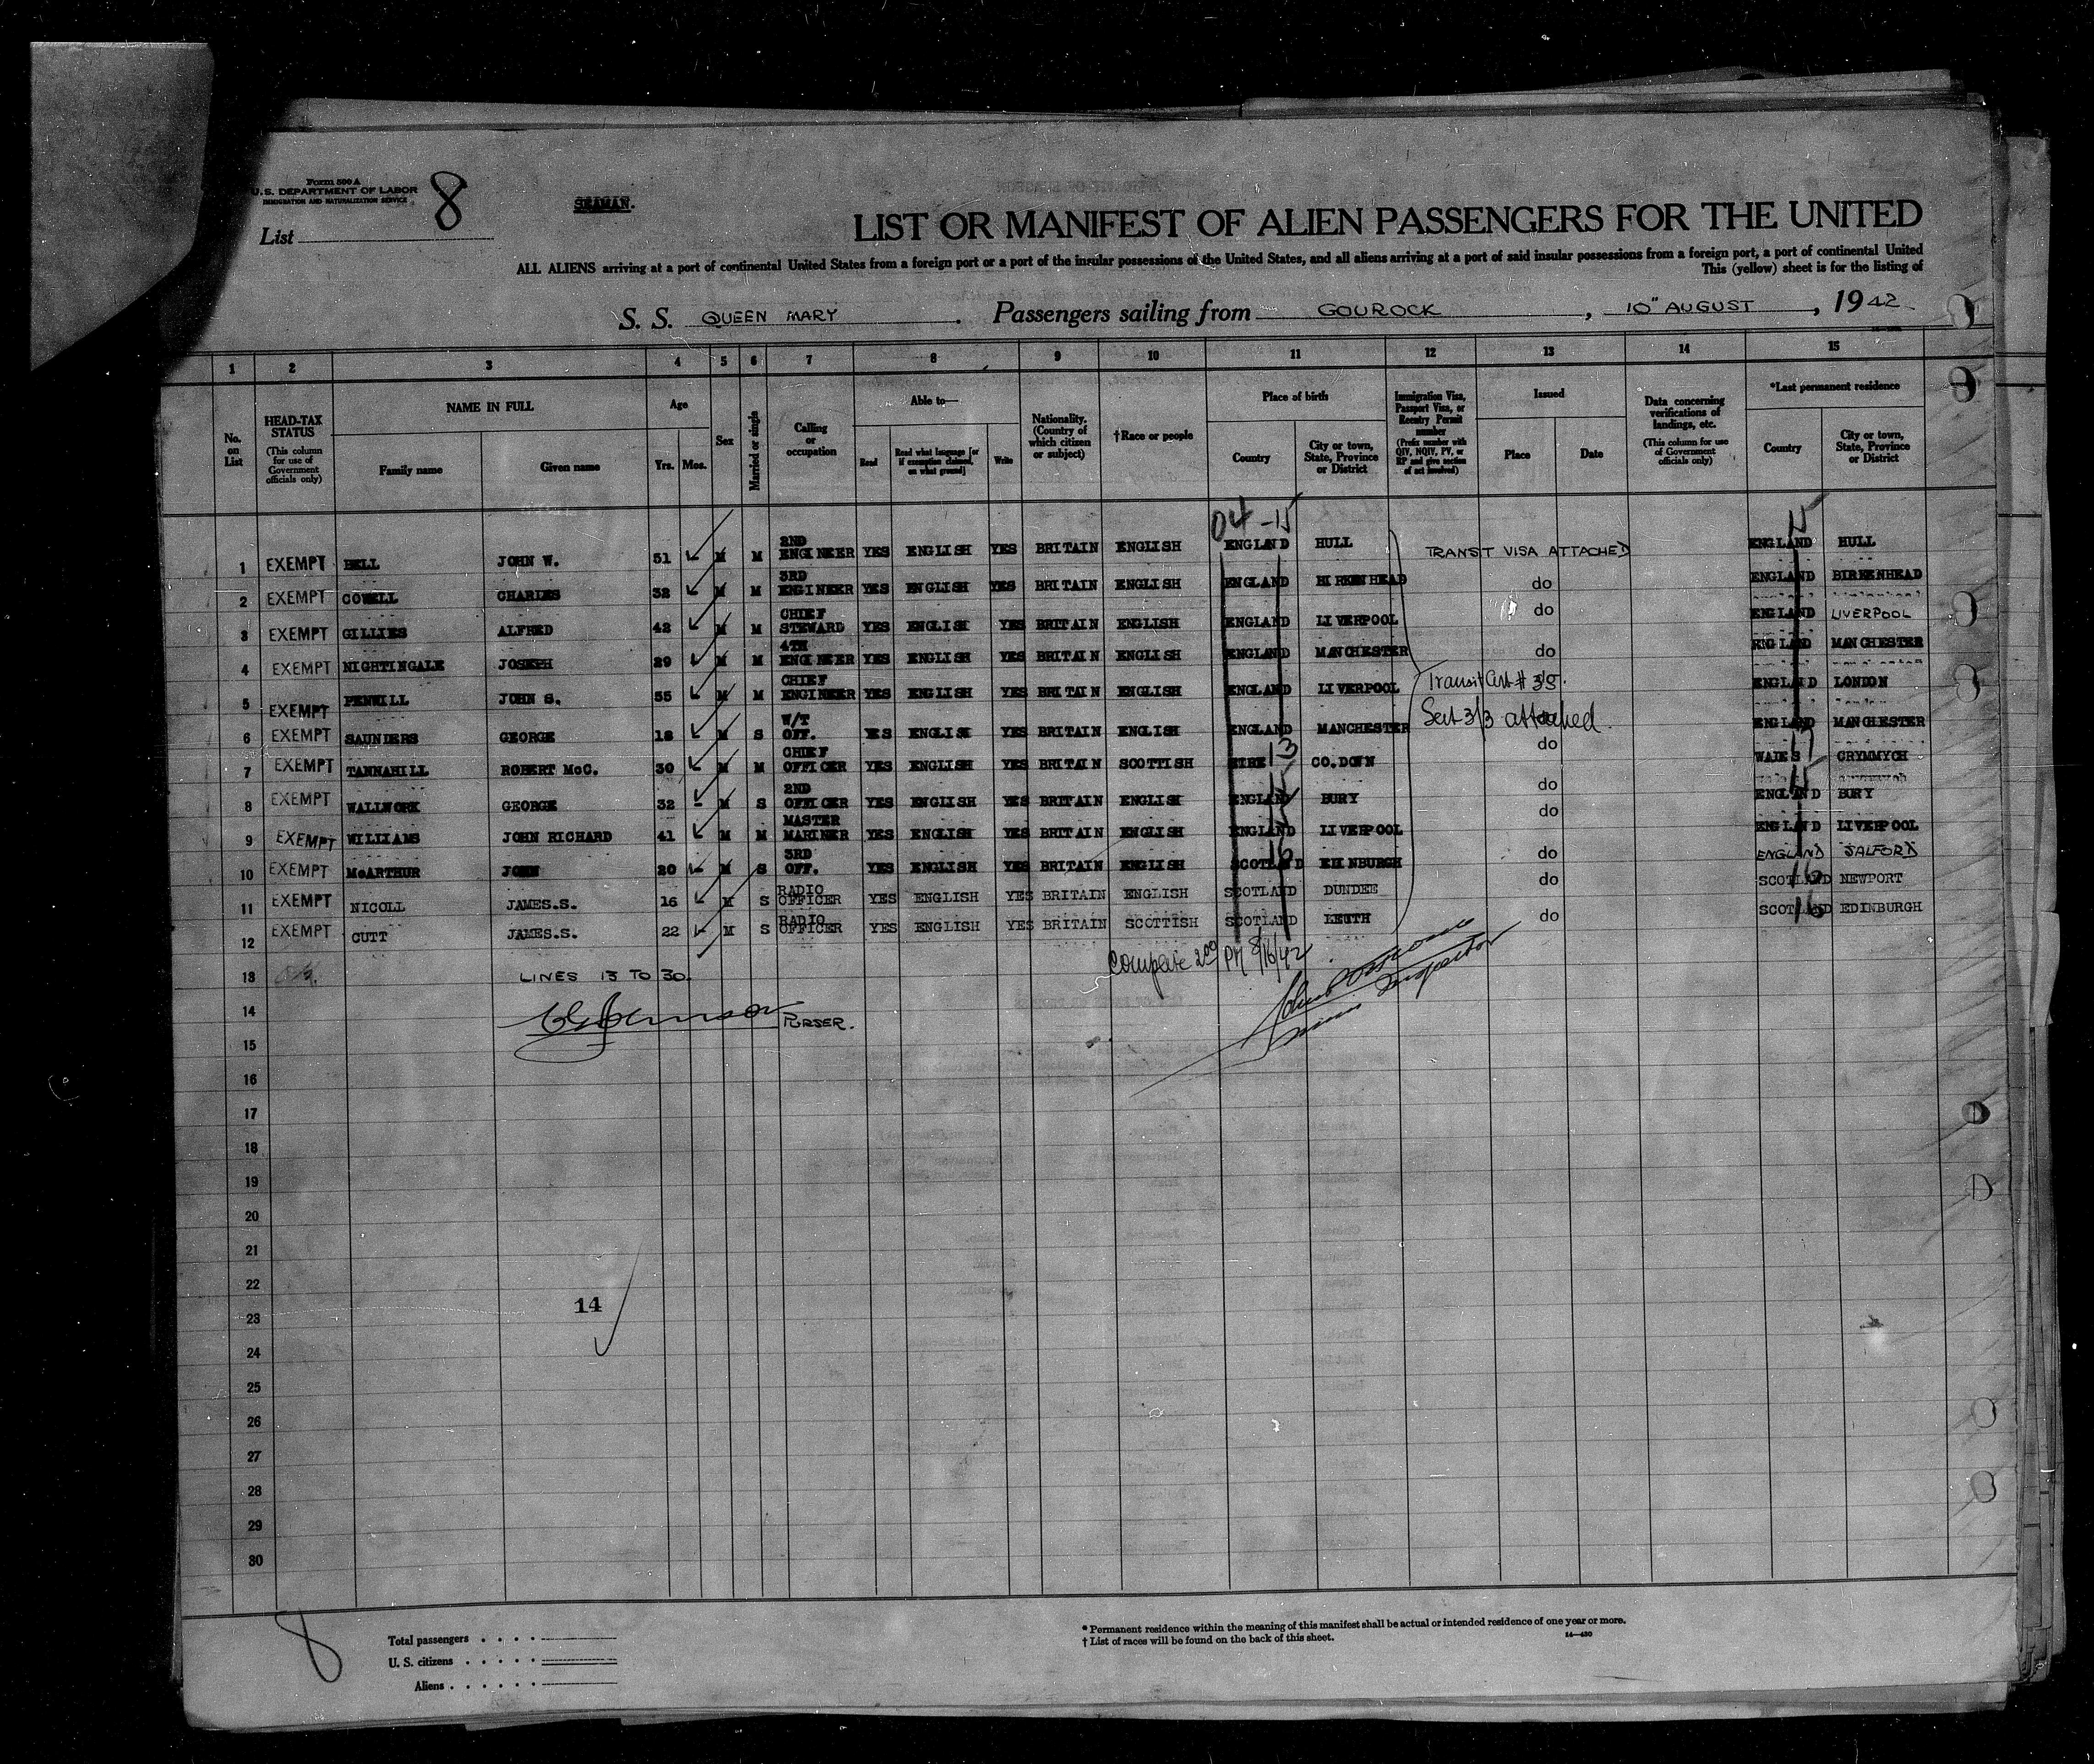 Form 500 A
U.S. DEPARTMENT OF LABOR
IMMIGRATION AND NATURALIZATION SERVICE
8
List
SEAMAN.
LIST OR MANIFEST OF ALIEN PASSENGERS FOR THE UNITED
ALL ALIENS arriving at a port of continental United States from a foreign port or a port of the insular possessions of the United States, and all aliens arriving at a port of said insular possessions from a foreign port, a port of continental United
This (yellow) sheet is for the listing of
S. S. QUEEN MARY. Passengers sailing from GOUROCK, 10" AUGUST, 1942
1 2 3 4 5 6 7 8 9 10 11 12 13 14 15
No. on List
HEAD-TAX STATUS (This column for use of Government officials only)
NAME IN FULL Family name Given name
Age Yrs. Mos.
Sex
Married or single
Calling or occupation
Able to— Read Read what language [or if exemption claimed, on what ground] Write
Nationality. (Country of which citizen or subject)
†Race or people
Place of birth Country City or town, State, Province or District
Immigration Visa, Passport Visa, or Reentry Permit number (Prefix number with QIV, NQIV, PV, or RP and give section of act involved)
Issued Place Date
Data concerning verifications of landings, etc. (This column for use of Government officials only)
*Last permanent residence Country City or town, State, Province or District
04 -15 15
1 EXEMPT BELL JOHN W. 51 M M 2ND ENGINEER YES ENGLISH YES BRITAIN ENGLISH ENGLAND HULL TRANSIT VISA ATTACHED ENGLAND HULL
2 EXEMPT COWELL CHARLES 32 M M 3RD ENGINEER YES ENGLISH YES BRITAIN ENGLISH ENGLAND BIRKENHEAD do ENGLAND BIRKENHEAD
3 EXEMPT GILLIES ALFRED 42 M M CHIEF STEWARD YES ENGLISH YES BRITAIN ENGLISH ENGLAND LIVERPOOL do ENGLAND LIVERPOOL
4 EXEMPT NIGHTINGALE JOSEPH 29 M M 4TH ENGINEER YES ENGLISH YES BRITAIN ENGLISH ENGLAND MANCHESTER do ENGLAND MANCHESTER
5 EXEMPT PENWILL JOHN S. 55 M M CHIEF ENGINEER YES ENGLISH YES BRITAIN ENGLISH ENGLAND LIVERPOOL Transit do ENGLAND LONDON
6 EXEMPT SAUNDERS GEORGE 18 M S W/T OFF. YES ENGLISH YES BRITAIN ENGLISH ENGLAND MANCHESTER 3/3 attached do ENGLAND MANCHESTER
7 EXEMPT TANNAHILL ROBERT McC. 30 M M CHIEF OFFICER YES ENGLISH YES BRITAIN SCOTTISH EIRE 13 CO.DOWN do WALES 17 CRYMMYCH
8 EXEMPT WALLWORK GEORGE 32 M S 2ND OFFICER YES ENGLISH YES BRITAIN ENGLISH ENGLAND 15 BURY do ENGLAND 15 BURY
9 EXEMPT WILLIAMS JOHN RICHARD 41 M M MASTER MARINER YES ENGLISH YES BRITAIN ENGLISH ENGLAND LIVERPOOL do ENGLAND LIVERPOOL
10 EXEMPT McARTHUR JOHN 20 M S 3RD OFF. YES ENGLISH YES BRITAIN ENGLISH SCOTLAND 16 EDINBURGH do ENGLAND SALFORD
11 EXEMPT NICOLL JAMES.S. 16 M S RADIO OFFICER YES ENGLISH YES BRITAIN ENGLISH SCOTLAND DUNDEE do SCOTLAND 16 NEWPORT
12 EXEMPT CUTT JAMES.S. 22 M S RADIO OFFICER YES ENGLISH YES BRITAIN SCOTTISH SCOTLAND LEITH do SCOTLAND 16 EDINBURGH
13 LINES 13 TO 30. PM 8/16/42
Inspector
14 PURSER.
15
16
17
18
19
20
21
22
23 14
24
25
26
27
28
29
30
8
Total passengers
U. S. citizens
Aliens
* Permanent residence within the meaning of this manifest shall be actual or intended residence of one year or more.
† List of races will be found on the back of this sheet.
14—430